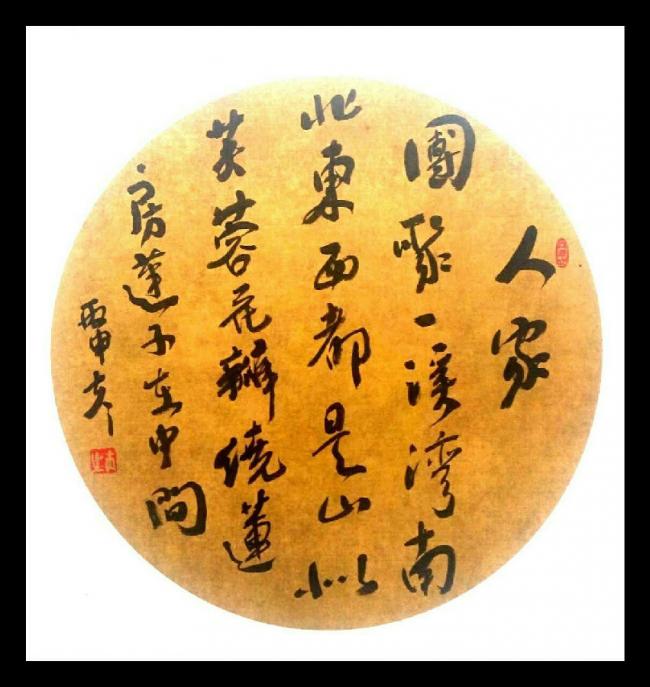 人家
團聚一溪灣南
北東西都是山似
芙蓉花瓣繞蓮
房蓮子在中間
丙申